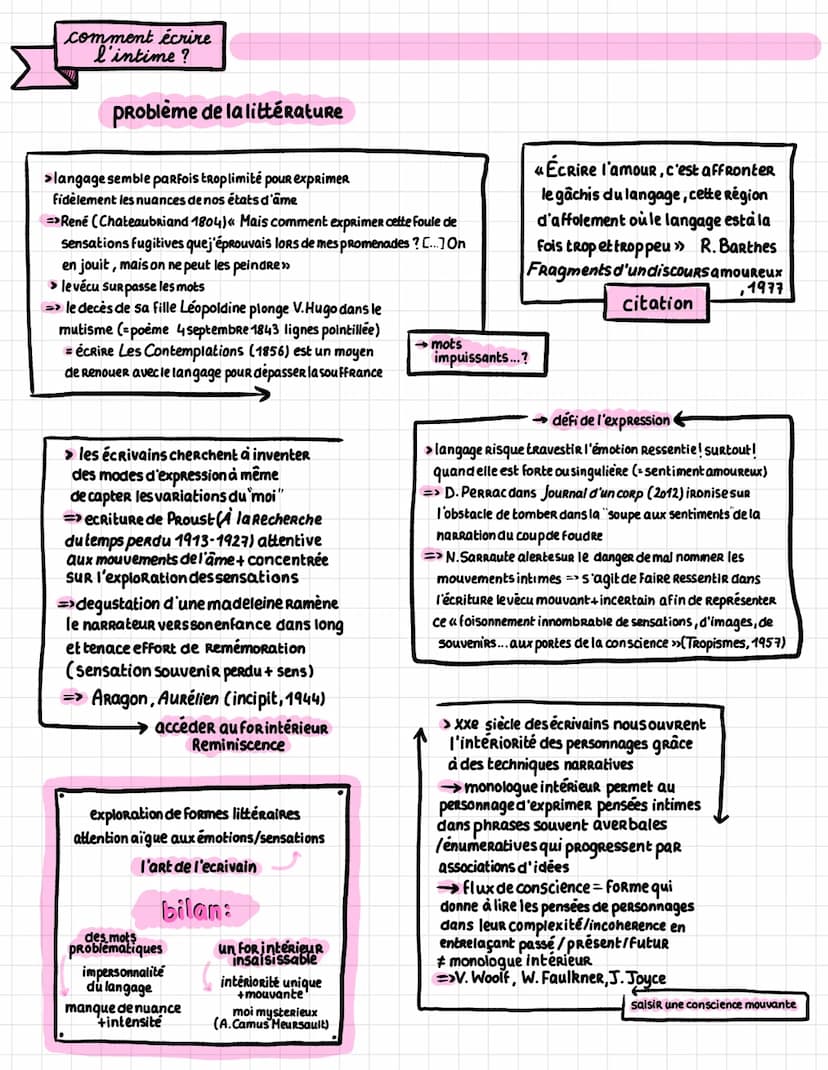 comment écrire
l'intime ?
problème de la littérature
> langage semble parfois trop limité pour exprimer
fidèlement les nuances de nos états d'âme
=> René (Chateaubriand 1804) « Mais comment exprimer cette foule de
sensations fugitives que j'éprouvais lors de mes promenades ? [...] On
en jouit, mais on ne peut les peindre »
> le vécu surpasse les mots
=> le decès de sa fille Léopoldine plonge V.Hugo dans le
mutisme (= poème 4 septembre 1843 lignes pointillée)
= écrire Les Contemplations (1856) est un moyen
de renouer avec le langage pour dépasser la souffrance
→ mots
impuissants...?
« Écrire l'amour, c'est affronter
le gâchis du langage, cette région
d'affolement où le langage est à la
fois trop et trop peu » R. Barthes
Fragments d'un discours amoureux
, 1977
citation
→ défi de l'expression
> langage risque travestir l'émotion ressentie ! surtout !
quand elle est forte ou singulière (= sentiment amoureux)
=> D. Perrac dans Journal d'un corp (2012) ironise sur
l'obstacle de tomber dans la "soupe aux sentiments" de la
narration du coup de foudre
=> N.Sarraute alerte sur le danger de mal nommer les
mouvements intimes => s'agit de faire ressentir dans
l'écriture le vécu mouvant + incertain afin de représenter
ce « foisonnement innombrable de sensations, d'images, de
souvenirs... aux portes de la conscience » (Tropismes, 1957)
> les écrivains cherchent à inventer
des modes d'expression à même
de capter les variations du "moi"
=> ecriture de Proust (À la Recherche
du temps perdu 1913-1927) attentive
aux mouvements de l'âme + concentrée
sur l'exploration des sensations
=> degustation d'une madeleine ramène
le narrateur vers son enfance dans long
et tenace effort de remémoration
(sensation souvenir perdu + sens)
=> Aragon, Aurélien (incipit, 1944)
accéder au for intérieur
Reminiscence
> XXe siècle des écrivains nous ouvrent
l'intériorité des personnages grâce
à des techniques narratives
→ monologue intérieur permet au
personnage d'exprimer pensées intimes
dans phrases souvent averbales
/énumeratives qui progressent par
associations d'idées
→ flux de conscience = forme qui
donne à lire les pensées de personnages
dans leur complexité/incoherence en
entrelaçant passé/présent/futur
≠ monologue intérieur
=> V. Woolf, W. Faulkner, J. Joyce
saisir une conscience mouvante
exploration de formes littéraires
attention aïgue aux émotions/sensations
l'art de l'ecrivain
bilan:
des mots
problématiques
impersonnalité
du langage
manque de nuance
+ intensité
un for intérieur
insaisissable
intériorité unique
+ mouvante
moi mysterieux
(A.Camus Meursault)